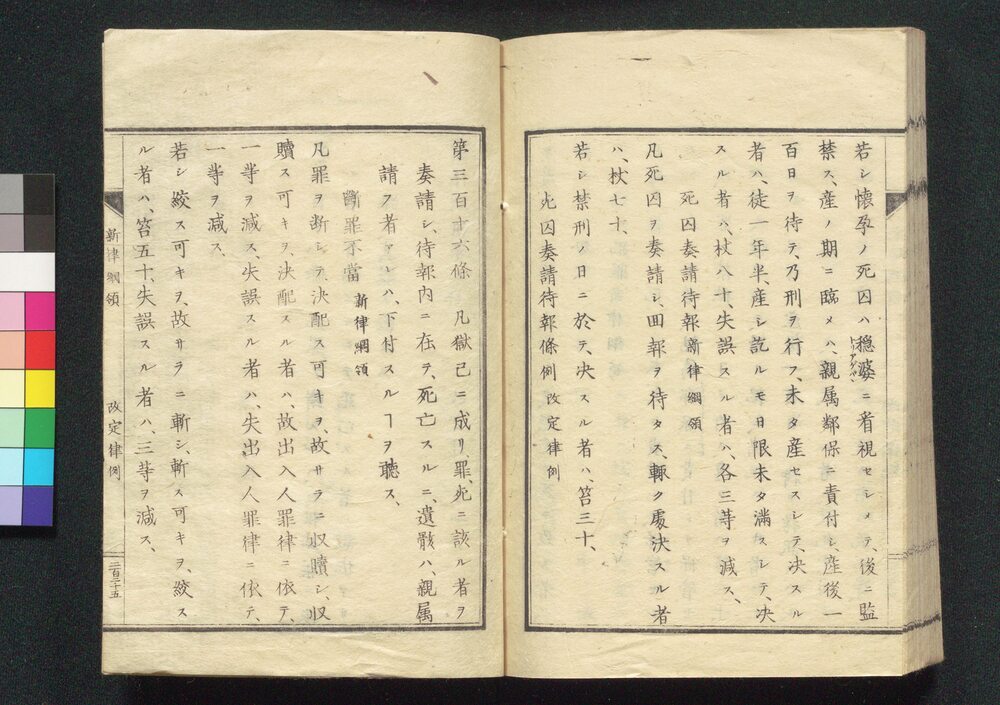 若シ懐孕ノ死囚ハ穏婆ニ看視セシメテ、後ニ監
トリアゲババ
禁ス、産ノ期ニ臨メハ、親属鄰保ニ責付シ、産後一
百日ヲ待テ、乃刑ヲ行フ、未タ産セスシテ、决スル
者ハ、徒一年半、産シ訖ルモ日限未タ満スシテ、决
スル者ハ、杖八十、失誤スル者ハ、各三等ヲ減ス、
死囚奏請待報 新律綱領
凡死囚ヲ奏請シ、回報ヲ待タス、輙ク處决スル者
ハ、杖七十、
若シ禁刑ノ日ニ於テ、决スル者ハ、笞三十、
死囚奏請待報條例 改定律例
第三百十六條 凡獄已ニ成リ、罪、死ニ該ル者ヲ
奏請シ、待報内ニ在テ、死亡スルニ、遺骸ハ、親属
請フ者アレハ、下付スルヿヲ聽ス、
斷罪不當 新律綱領
凡罪ヲ斷シテ、决配ス可キヲ、故サラニ収贖シ、収
贖ス可キヲ、决配スル者ハ、故出入人罪律ニ依テ、
一等ヲ減ス、失誤スル者ハ、失出入人罪律ニ依テ、
一等ヲ減ス、
若シ絞ス可キヲ、故サラニ斬シ、斬ス可キヲ、絞ス
ル者ハ、笞五十、失誤スル者ハ、三等ヲ減ス、
新律綱領 改定律例 二百二十五